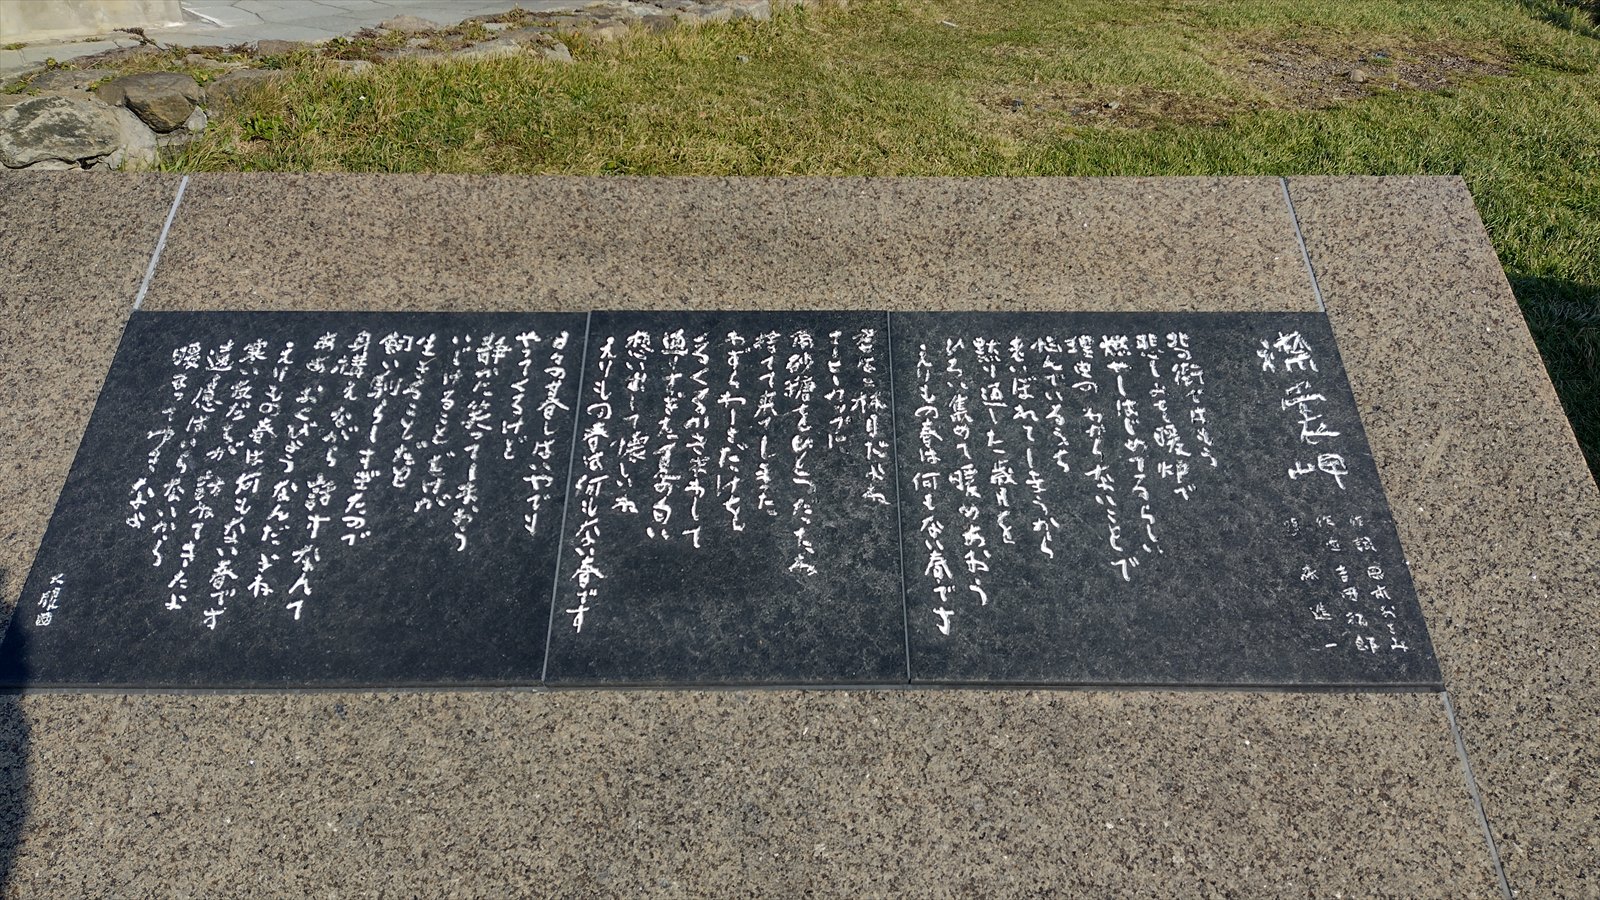 襟裳岬
作詞 岡本おさみ
作曲 吉田拓郎
唄 森進一
北の街ではもう
悲しみを暖炉で
燃やしはじめてるらしい
理由のわからないことで
悩んでいるうち
老いぼれてしまうから
黙り通した歳月を
ひろい集めて暖めあおう
えりもの春は何もない春です
君は二杯目だよね
コーヒーカップに
角砂糖をひとつだったね
捨てて来てしまった
わずらわしさだけを
くるくるかきまわして
通りすぎた夏の匂い
想い出して懐しいね
えりもの春は何もない春です
日々の暮しはいやでも
やってくるけど
静かに笑ってしまおう
いじけることだけが
生きることだと
飼い馴らしすぎたので
身構えながら 話すなんて
ああ おくびょうなんだよね
えりもの春は何もない春です
寒い友だちが訪ねてきたよ
遠慮はいらないから
暖まってゆきなよ